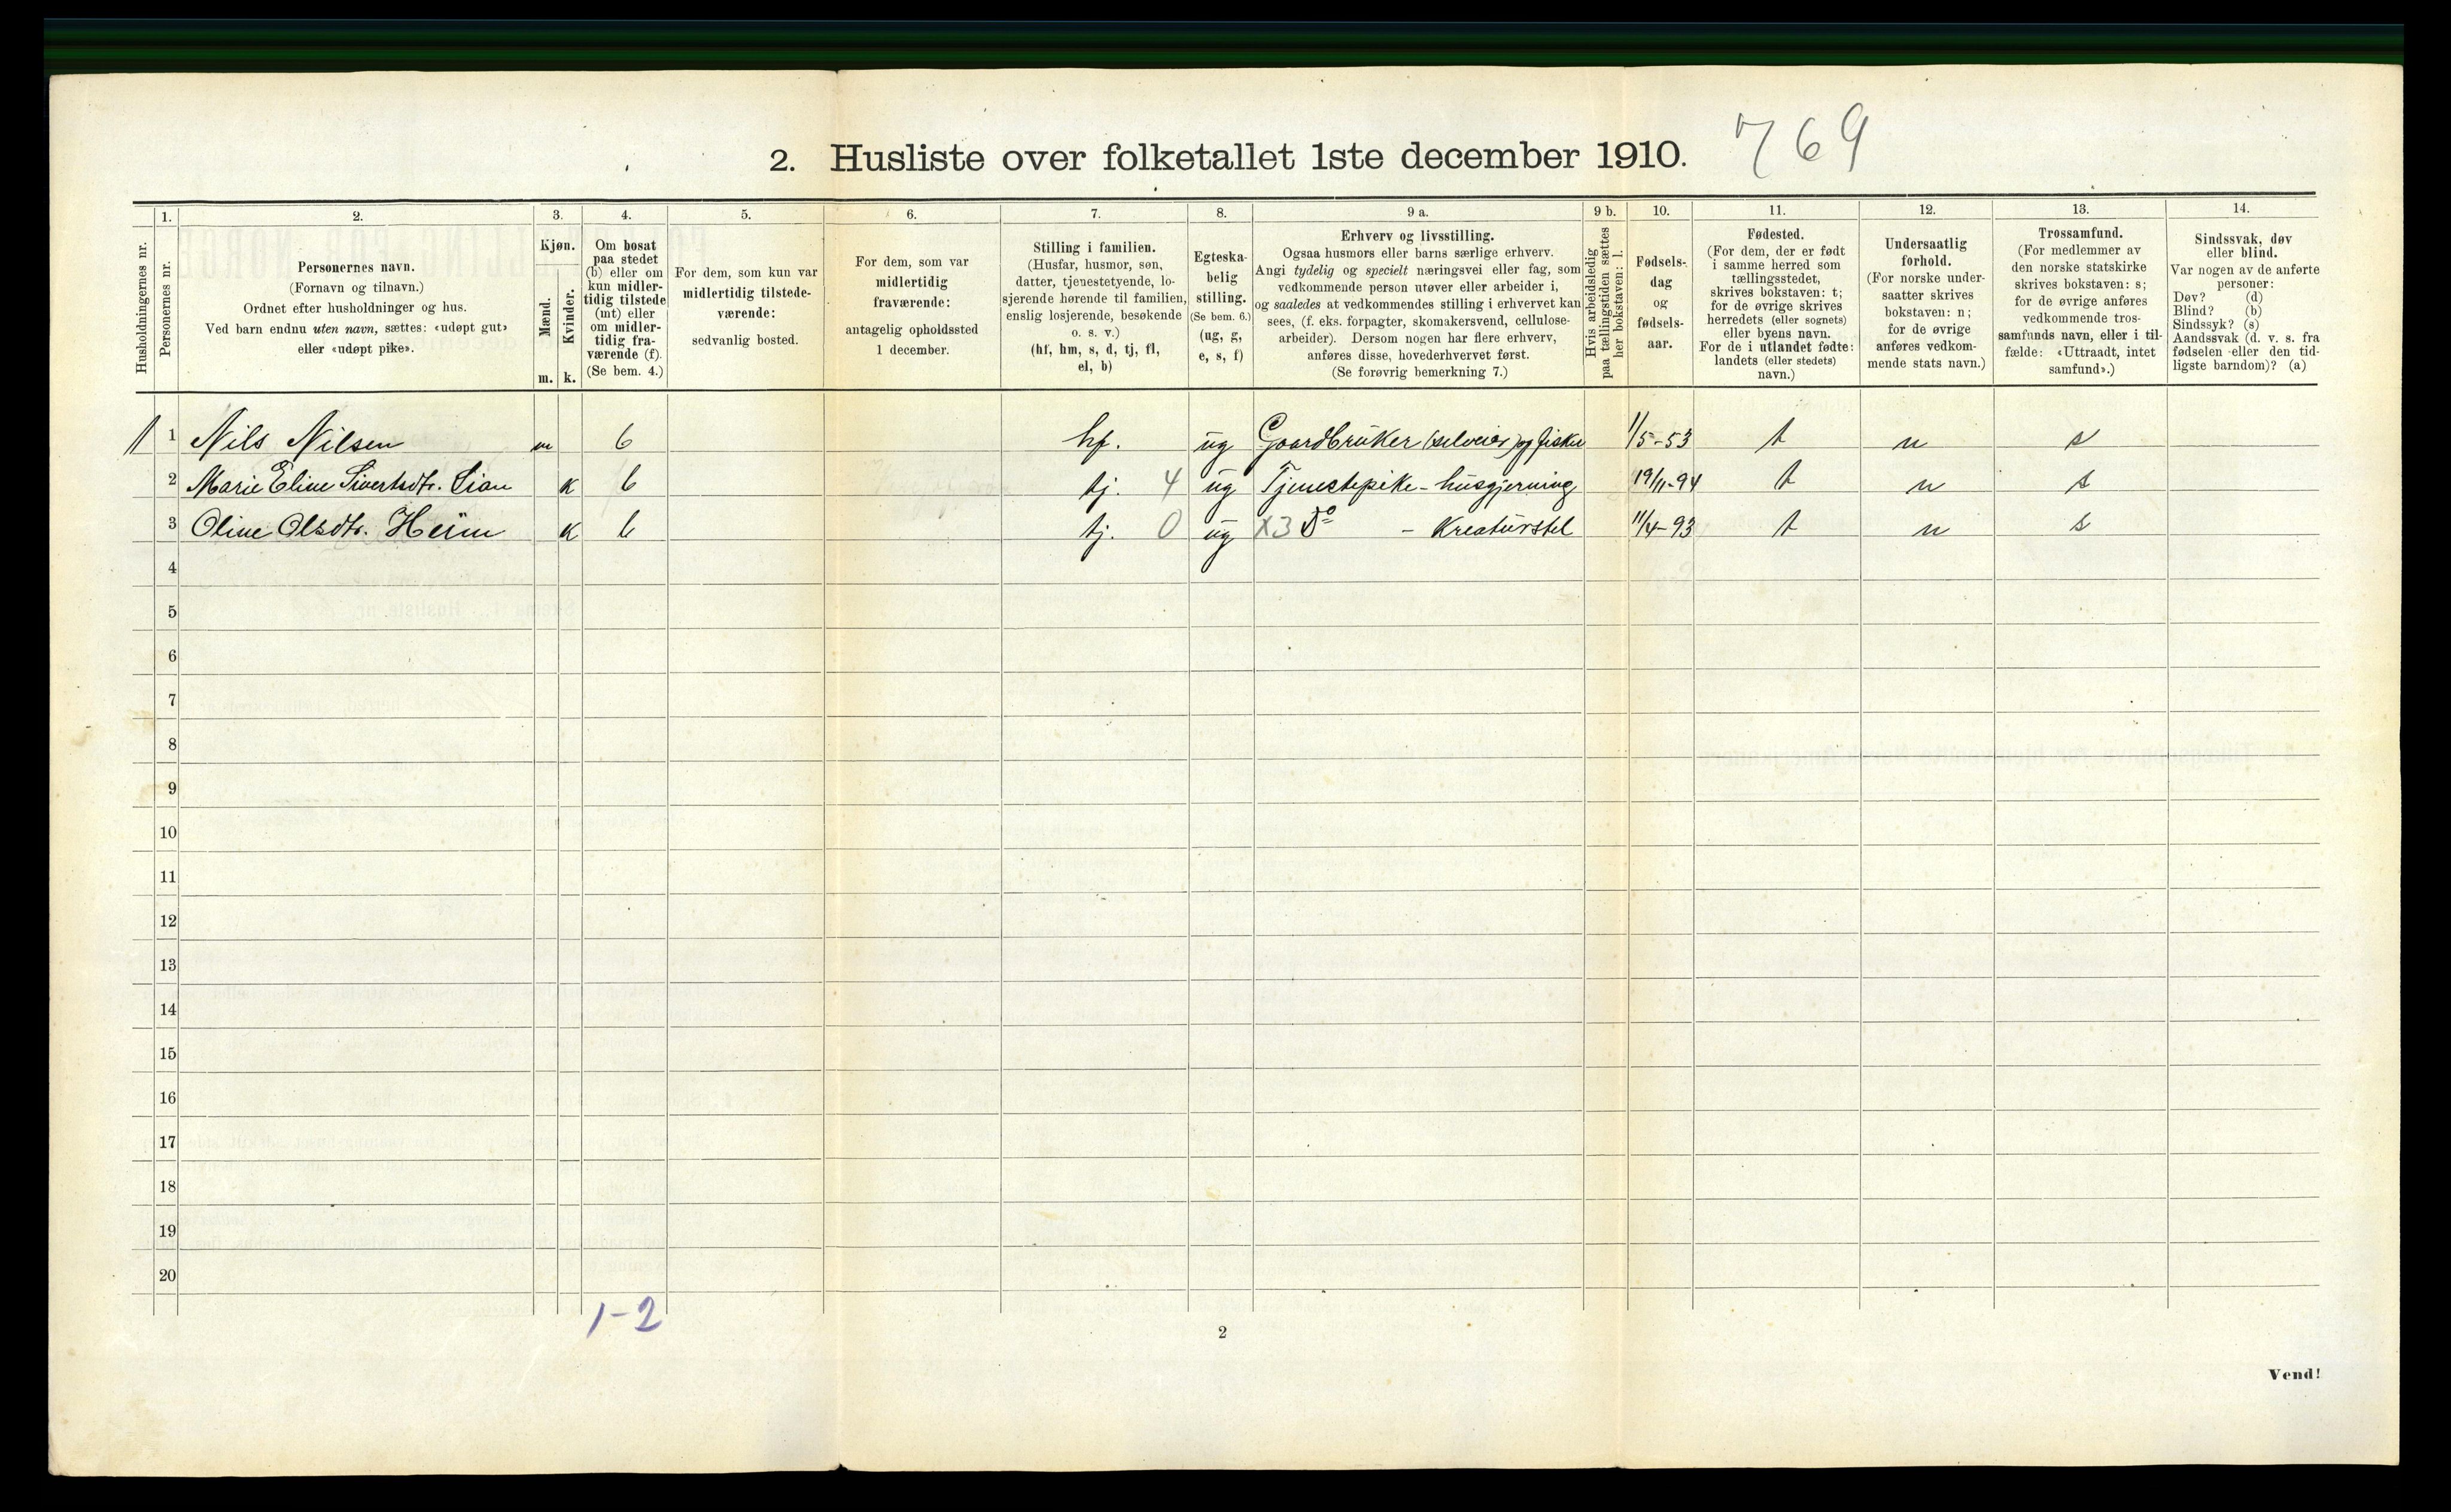 2. Husliste over folketallet 1ste december 1910. 769
1. 2. 3. 4. 5. 6. 7. 8. 9 a. 9 b. 10. 11. 12. 13. 14.
Husholdningernes nr.
Personernes nr.
Personernes navn.
(Fornavn og tilnavn.)
Ordnet efter husholdninger og hus.
Ved barn endnu uten navn, sættes: «udøpt gut»
eller «udøpt pike».
Kjøn.
Mænd.
Kvinder.
m. k.
Om bosat
paa stedet
(b) eller om
kun midler-
tidig tilstede
(mt) eller
om midler-
tidig fra-
værende (f).
(Se bem. 4.)
For dem, som kun var
midlertidig tilstede-
værende:
sedvanlig bosted.
For dem, som var
midlertidig
fraværende:
antagelig opholdssted
1 december.
Stilling i familien.
(Husfar, husmor, søn,
datter, tjenestetyende, lo-
sjerende hørende til familien,
enslig losjerende, besøkende
o. s. v.)
(hf, hm, s, d, tj, fl,
el, b)
Egteska-
belig
stilling.
(Se bem. 6.)
(ug, g,
e, s, f)
Erhverv og livsstilling.
Ogsaa husmors eller barns særlige erhverv.
Angi tydelig og specielt næringsvei eller fag, som
vedkommende person utøver eller arbeider i,
og saaledes at vedkommendes stilling i erhvervet kan
sees, (f. eks. forpagter, skomakersvend, cellulose-
arbeider). Dersom nogen har flere erhverv,
anføres disse, hovederhvervet først.
(Se forøvrig bemerkning 7.)
Hvis arbeidsledig
paa tællingstiden sættes
her bokstaven: l.
Fødsels-
dag
og
fødsels-
aar.
Fødested.
(For dem, der er født
i samme herred som
tællingsstedet,
skrives bokstaven: t;
for de øvrige skrives
herredets (eller sognets)
eller byens navn.
For de i utlandet fødte:
landets (eller stedets)
navn.)
Undersaatlig
forhold.
(For norske under-
saatter skrives
bokstaven: n;
for de øvrige
anføres vedkom-
mende stats navn.)
Trossamfund.
(For medlemmer av
den norske statskirke
skrives bokstaven: s;
for de øvrige anføres
vedkommende tros-
samfunds navn, eller i til-
fælde: «Uttraadt, intet
samfund».)
Sindssvak, døv
eller blind.
Var nogen av de anførte
personer:
Døv? (d)
Blind? (b)
Sindssyk? (s)
Aandssvak (d. v. s. fra
fødselen eller den tid-
ligste barndom)? (a)
1 1 Nils Nilsen m b hf. ug Gaardbruker (selveier) og fisker 1/5-53 t n s
2 Marie Eline Sivertsdtr. Lian k b tj. 4 ug Tjenestepike - husgjerning 19/11-94 t n s
3 Oline Olsdtr. Heim k b tj. 0 ug X3 Do - Kreaturstel 11/4-93 t n s
4
5
6
7
8
9
10
11
12
13
14
15
16
17
18
19
20
1-2
2
Vend!